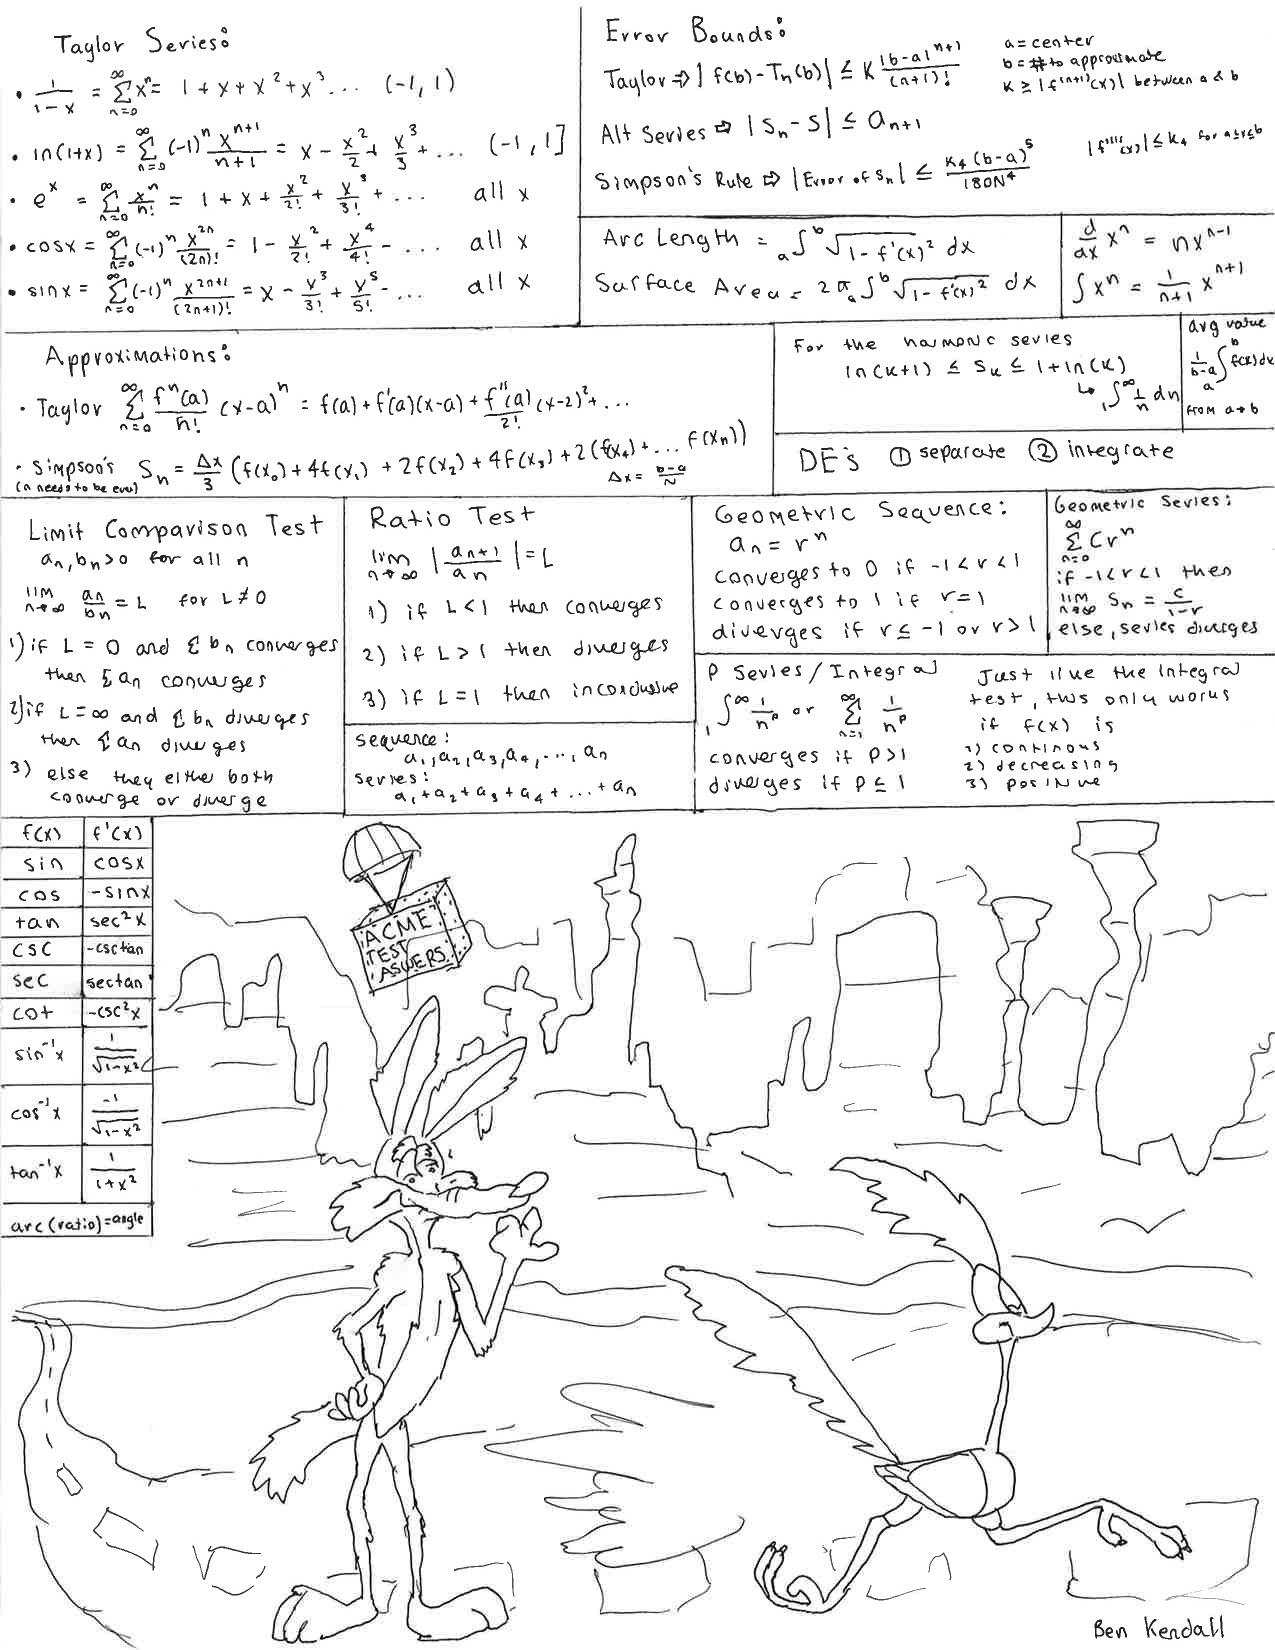 Taylor Series:
• 1/(1-x) = ∑_{n=0}^{∞} x^n = 1 + x + x² + x³ ... (-1, 1)
• ln(1+x) = ∑_{n=0}^{∞} (-1)^n x^{n+1}/(n+1) = x - x²/2 + x³/3 + ... (-1, 1]
• e^x = ∑_{n=0}^{∞} x^n/n! = 1 + x + x²/2! + x³/3! + ... all x
• cosx = ∑_{n=0}^{∞} (-1)^n x^{2n}/(2n)! = 1 - x²/2! + x⁴/4! - ... all x
• sinx = ∑_{n=0}^{∞} (-1)^n x^{2n+1}/(2n+1)! = x - x³/3! + x⁵/5! - ... all x
Error Bounds:
Taylor ⇒ |f(b) - T_n(b)| ≤ K |b-a|^{n+1}/(n+1)!
a = center
b = # to approximate
K ≥ |f^{(n+1)}(x)| between a & b
Alt Series ⇒ |S_n - S| ≤ a_{n+1}
Simpson's Rule ⇒ |Error of S_n| ≤ K₄(b-a)⁵/180N⁴
|f''''(x)| ≤ K₄ for a≤x≤b
Arc Length = a∫^b √(1 - f'(x)²) dx
Surface Area = 2π a∫^b √(1 - f'(x)²) dx
d/dx x^n = nx^{n-1}
∫x^n = 1/(n+1) x^{n+1}
Approximations:
• Taylor ∑_{n=0}^{∞} f^n(a)/n! (x-a)^n = f(a) + f'(a)(x-a) + f''(a)/2! (x-2)² + ...
• Simpson's S_n = Δx/3 (f(x₀) + 4f(x₁) + 2f(x₂) + 4f(x₃) + 2(f(x₄) + ... f(x_n))
(n needs to be even)
Δx = (b-a)/N
For the harmonic series
ln(k+1) ≤ S_k ≤ 1 + ln(k)
↳ 1∫^∞ 1/n dn
avg value
1/(b-a) a∫^b f(x)dx
from a→b
DE's ① separate ② integrate
Limit Comparison Test
a_n, b_n > 0 for all n
lim n→∞ a_n/b_n = L for L≠0
1) if L = 0 and ∑ b_n converges
then ∑ a_n converges
2) if L = ∞ and ∑ b_n diverges
then ∑ a_n diverges
3) else they either both
converge or diverge
Ratio Test
lim n→∞ |a_{n+1}/a_n| = L
1) if L<1 then converges
2) if L>1 then diverges
3) if L=1 then inconclusive
sequence:
a₁, a₂, a₃, a₄, ..., a_n
series:
a₁ + a₂ + a₃ + a₄ + ... + a_n
Geometric Sequence:
a_n = r^n
converges to 0 if -1<r<1
converges to 1 if r=1
diverges if r≤-1 or r>1
Geometric Series:
∑_{n=0}^{∞} Cr^n
if -1<r<1 then
lim n→∞ S_n = c/(1-r)
else, series diverges
P Series / Integral
1∫^∞ 1/n^p or ∑_{n=1}^{∞} 1/n^p
converges if P>1
diverges if P≤1
Just like the integral
test, this only works
if f(x) is
1) continous
2) decreasing
3) positive
f(x) f'(x)
sin cosx
cos -sinx
tan sec²x
csc -csctan
sec sectan
cot -csc²x
sin⁻¹x 1/√(1-x²)
cos⁻¹x -1/√(1-x²)
tan⁻¹x 1/(1+x²)
arc(ratio)=angle
ACME
TEST
ASWERS
Ben Kendall